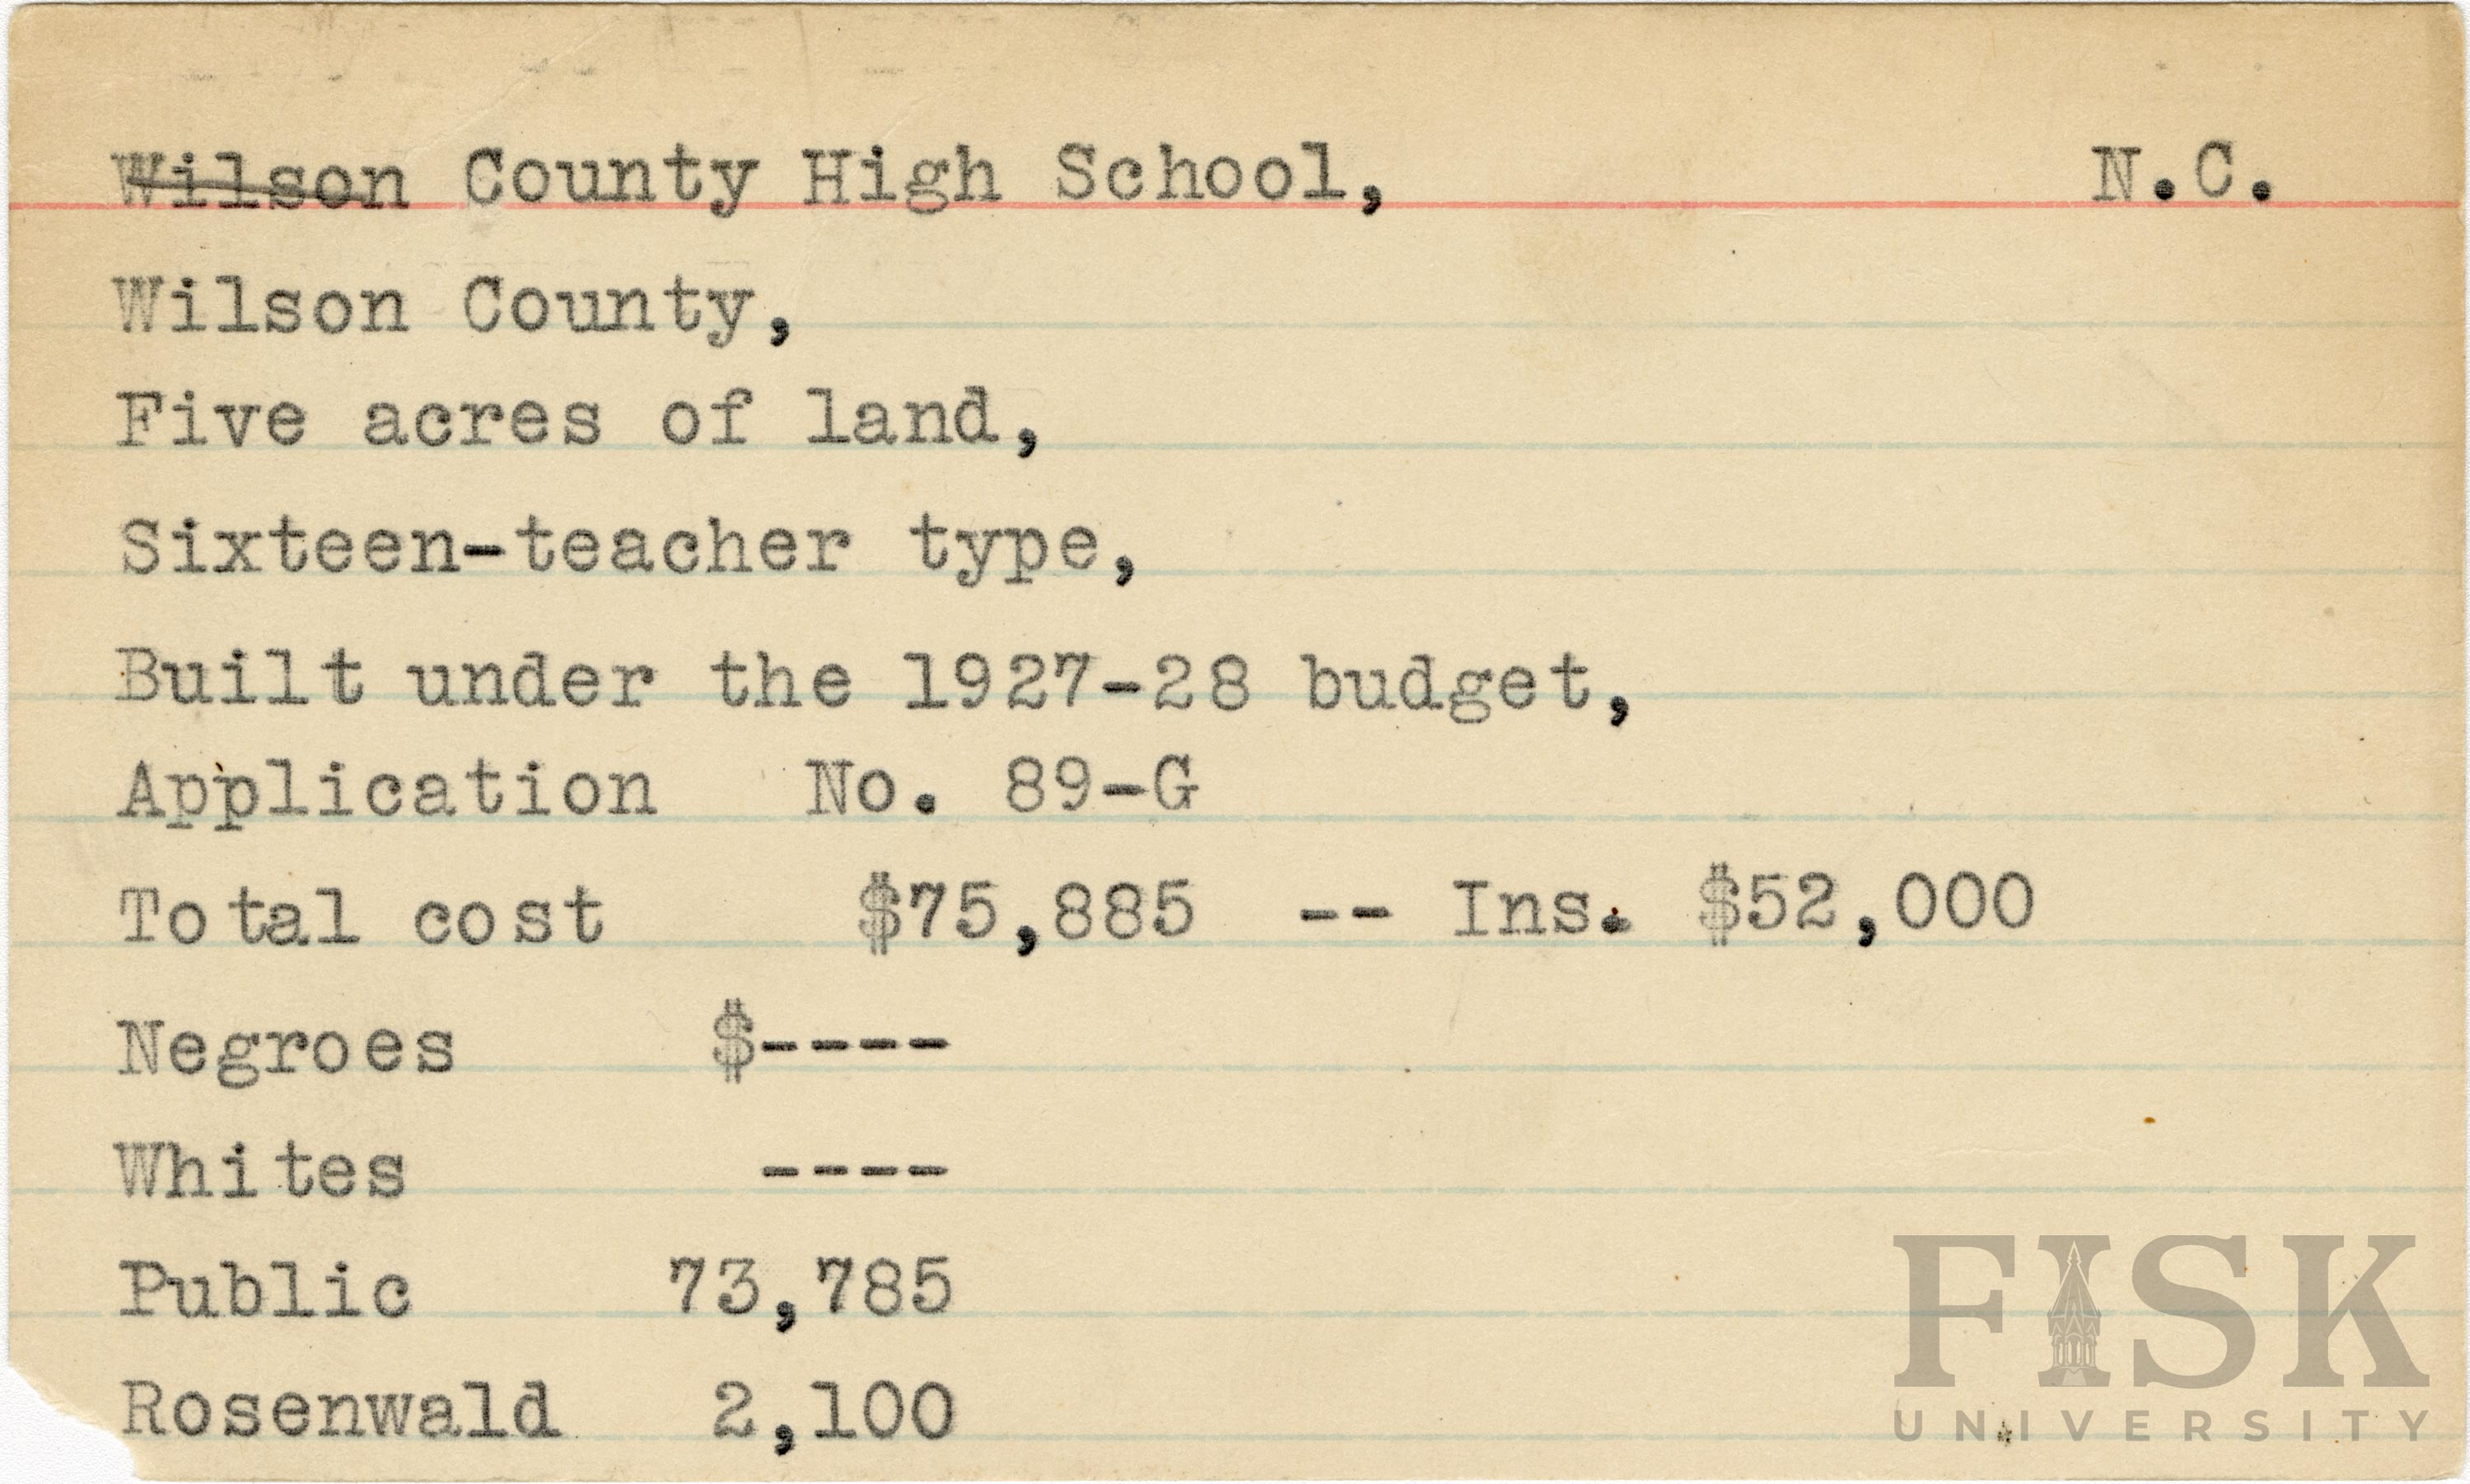 Wilson County High School, N.C.
Wilson County,
Five acres of land,
Sixteen-teacher type,
Built under the 1927-28 budget,
Application No. 89-G
Total cost $75,885 -- Ins. $52,000
Negroes $----
Whites ----
Public 73,785
Rosenwald 2,100
FISK
UNIVERSITY